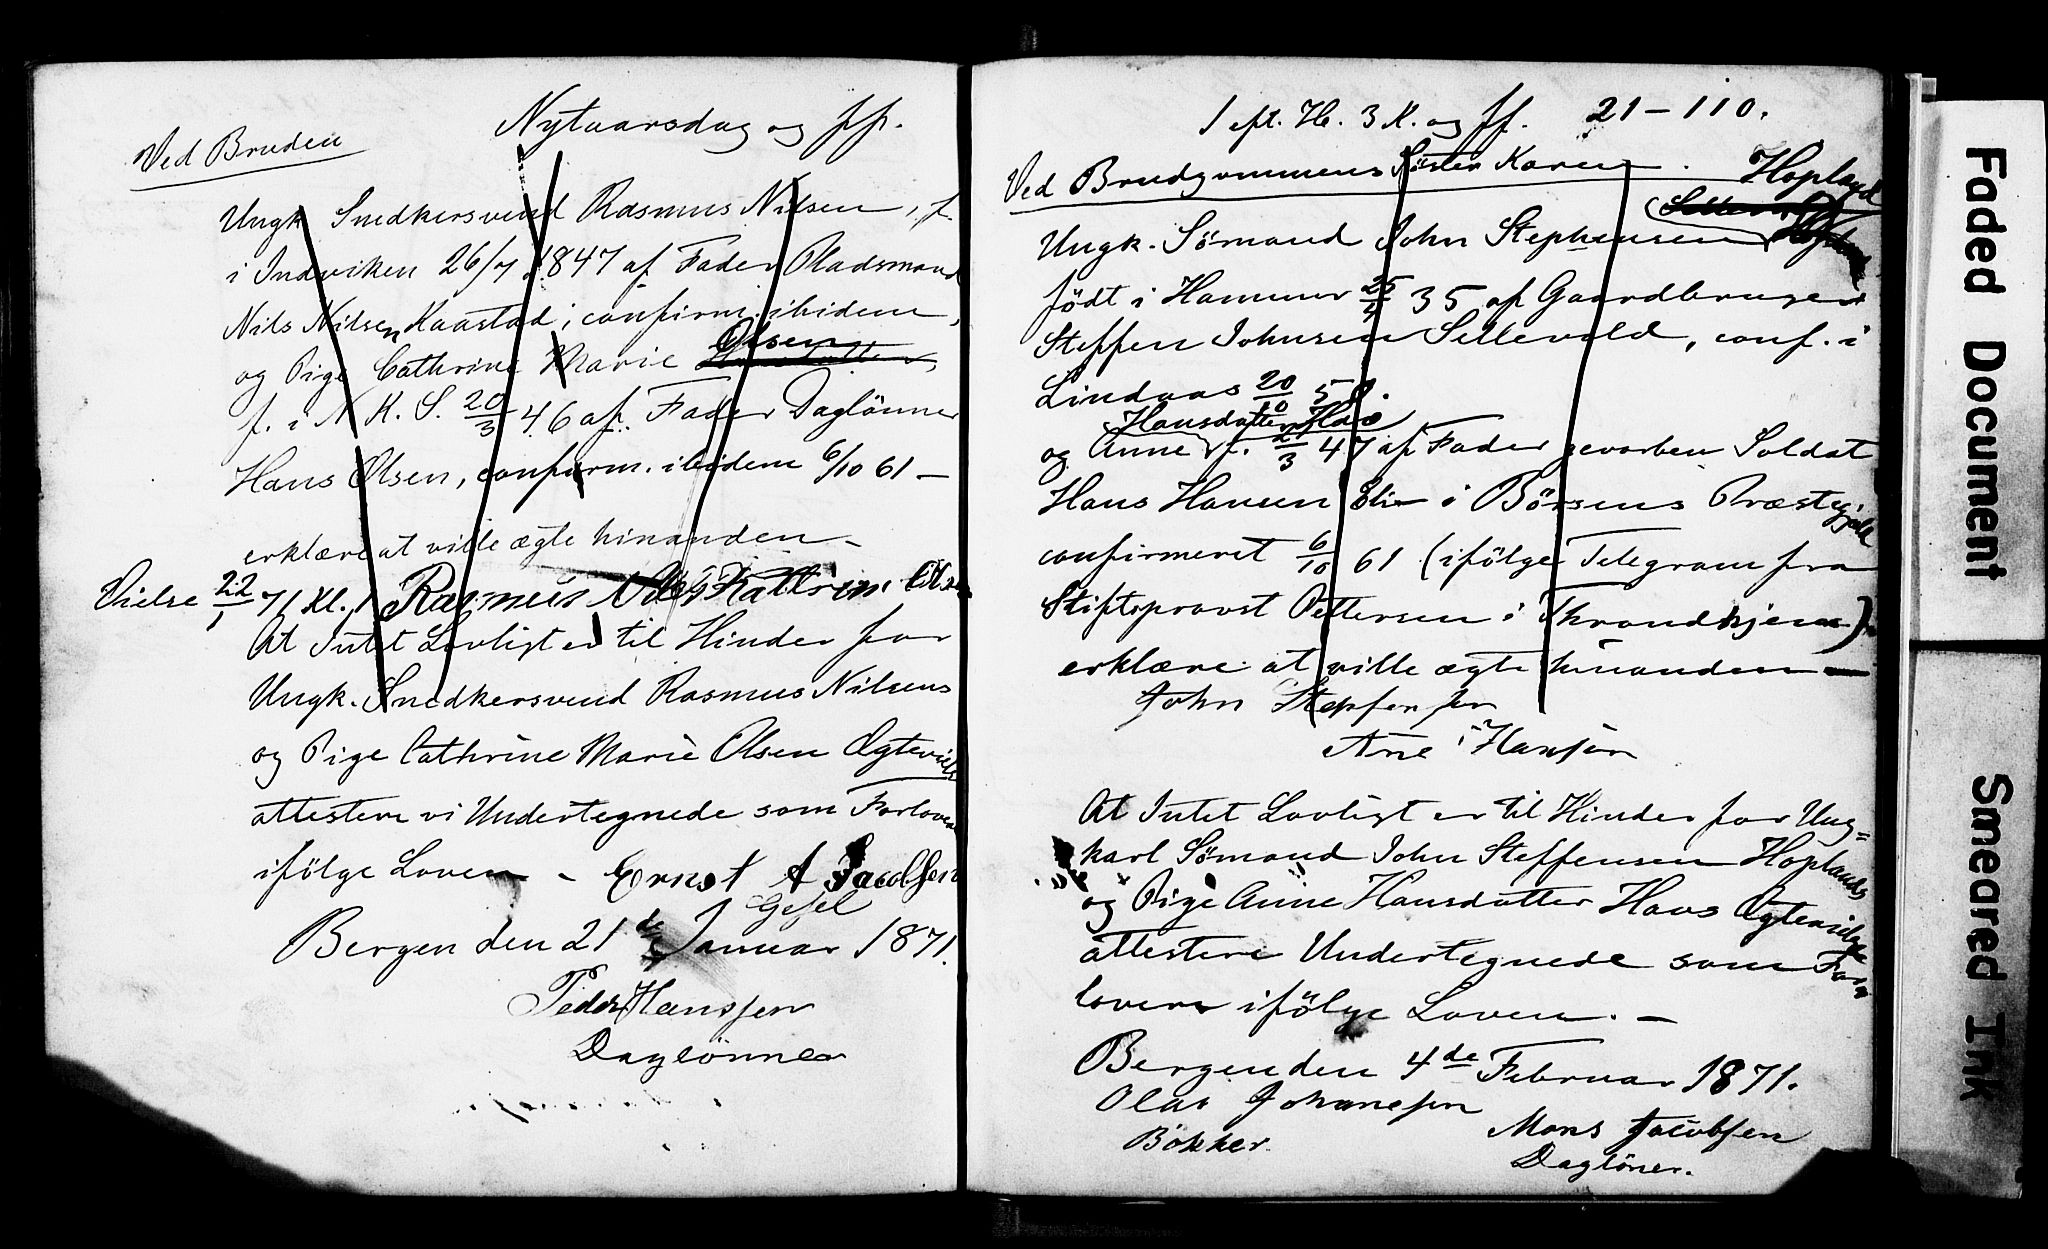 Nytaarsdag og ff.
Ved Bruden
Ungk. Snedkersvend Rasmus Nilsen, f.
i Indviken 26/7 1847 af Fader Pladsmand
Nils Nilsen Kaastad; confirm. ibidem,
og Pige Cathrine Marie Olsen
f. i N. K. S. 20/3 46 af Fader Daglönner
Hans Olsen, confirm. ibidem 6/10 61 –
erklære at ville ægte hinanden –
Vielse 22/1 71 Kl. 1 Rasmus Nils Kattrine Olsen
At Intet Lovligt er til Hinder for
Ungk. Snedkersvend Rasmus Nilsens
og Pige Cathrine Marie Olsen Ægtevielse
attestere vi Undertegnede som Forlovere
ifölge Loven – Ernst A Jacobsen
Gesel
Bergen den 21de Januar 1871.
Peder Hanssen
Daglönner
1 eft. H. 3 K. og ff. 21–110.
Ved Brudgommens Söster Karen. Hopland
Ungk. Sömand John Stephensen
födt i Hammer 25/4 35 af Gaardbruger
Steffen Johnsen Sellevold, conf. i
Lindaas 20/10 50.
Hansdatter
og Anne f. 47 af Fader gevorben Soldat
Hans Hansen i Börsens Præstegjeld
confirmeret 6/10 61 (ifölge Telegram fra
Stiftsprovst Pettersen i Throndhjem)
erklære at ville ægte hinanden –
John Stepfensen
Ane Hansen
At Intet Lovligt er til Hinder for Ung=
karl Sömand John Steffensen Hoplands
og Pige Anne Hansdatter Ægtevielse
attestere Undertegnede som For=
lovere ifölge Loven. –
Bergen den 4de Februar 1871.
Olai Johanesen
Mons Jacobsen
Bökker.
Daglöner.
Faded Document
Smeared Ink